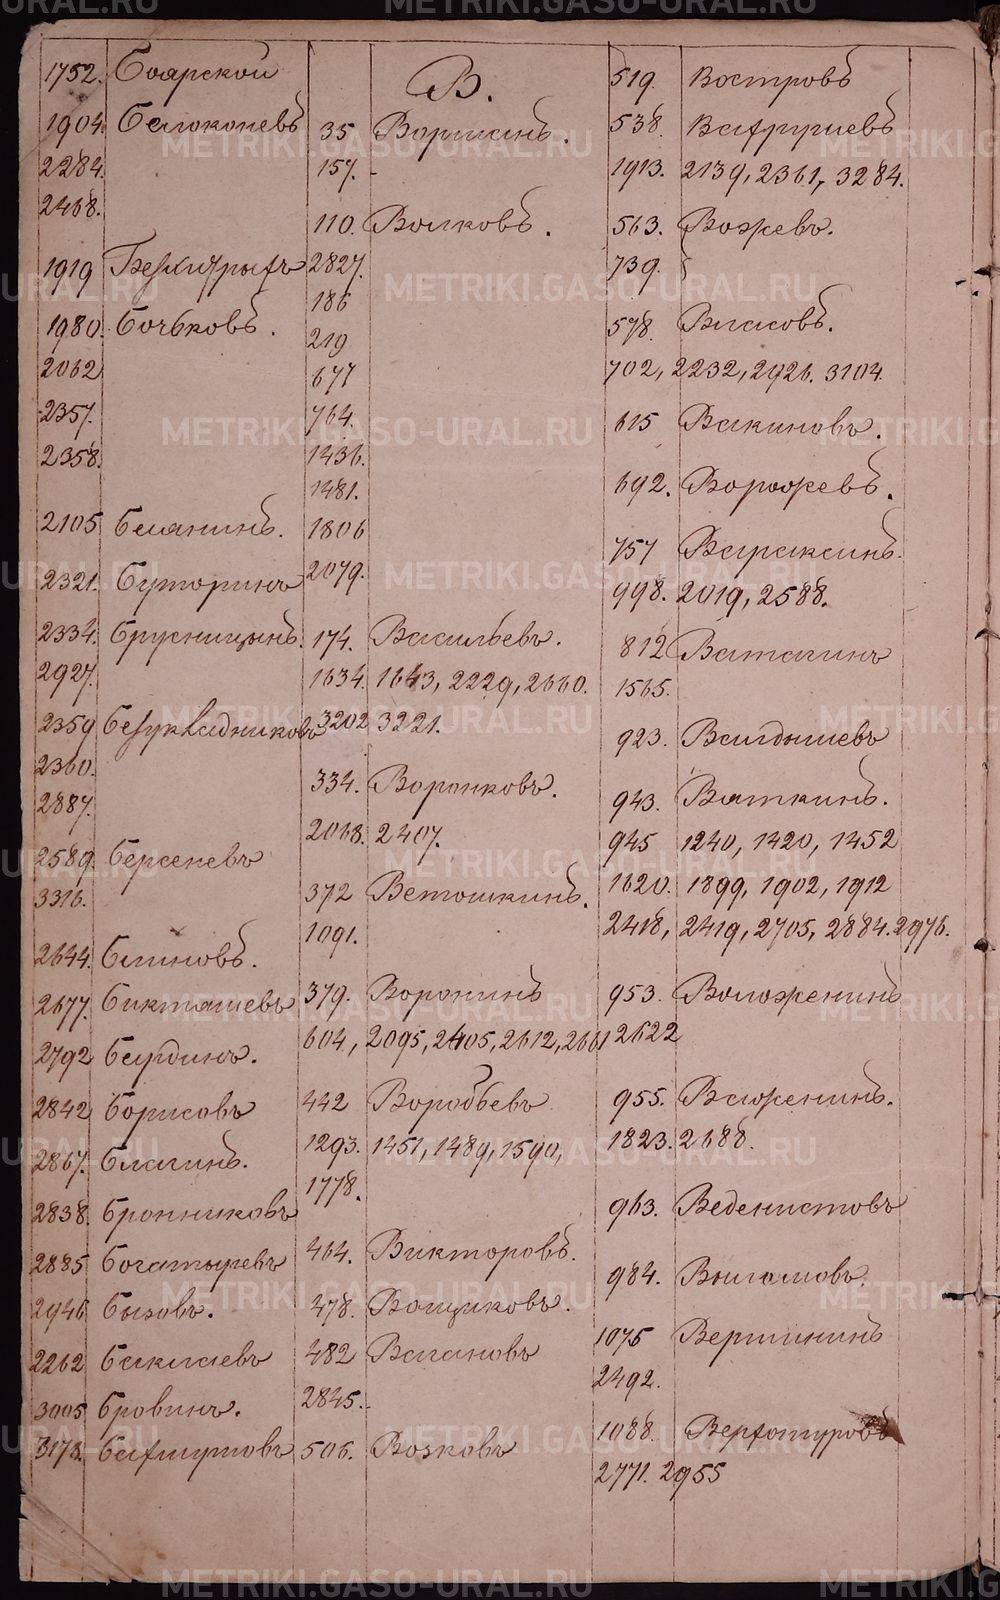 1752. Боярской
1904. Белоконевъ
2284.
2468.
1919 Безхитрыхъ
1980. Бочьковъ.
2062
2357.
2358.
2105 Белянинъ.
2321. Буторинъ
2334. Брусницынъ.
2927.
2359 Безукладниковъ
2360.
2887.
2589. Берсеневъ
3316.
2644. Блиновъ.
2677. Бикташевъ
2792 Бардинъ.
2842 Борисовъ
2867. Благинъ.
2838. Бронниковъ
2885 Богатыревъ
2946 Бызовъ.
2262 Баклаевъ
3005 Бровинъ.
3178.
В.
35 Воршанъ.
157.
110. Волковъ.
2827.
186
219
677
764.
1436.
1481.
1806
2079.
174. Васильевъ.
1634. 1643, 2229, 2660.
3202 3221.
334. Воронковъ.
2068. 2407.
372 Ветошкинъ.
1091.
379. Воронинъ
604, 2095, 2405, 2612, 2661 2622
442 Воробьевъ
1293. 1451, 1489, 1590,
1778.
464. Викторовъ.
478. Вощиковъ.
482 Вагановъ
2845.
506. Возковъ
519. Востровъ
538.
1913. 2139, 2361, 3284.
563. Вожевъ.
739.
578. Власовъ.
702, 2232, 2926. 3104.
615 Вакиновъ.
692. Ворожевъ.
757 Вараксинъ.
998. 2019, 2588.
812 Ватагинъ
1565.
923. Валдышевъ
943. Вяткинъ.
945 1240, 1420, 1452
1620. 1899, 1902, 1912
2418, 2419, 2705, 2884. 2976.
953. Воложенинъ
955. Вложенинъ.
1823. 2688.
963. Веденистовъ
984. Выломовъ.
1075 Вершининъ
2492.
1088. Верхотуровъ
2771. 2955
METRIKI.GASO-URAL.RU